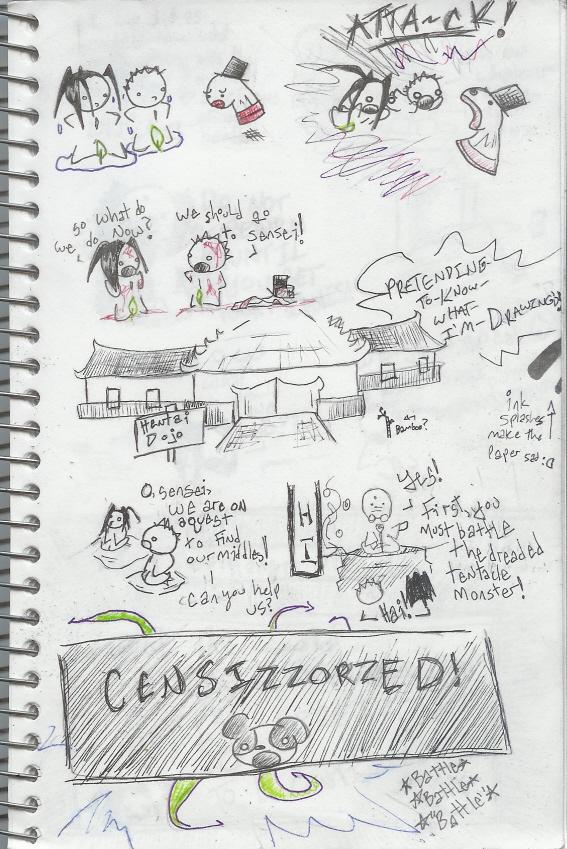 ATTA~CK!
So what do
we do Now?
we should go
to Sensei!
PRETENDING-
TO-KNOW-
WHAT-
I'M-DRAWING!
Hentai
Dojo
Bamboo?
ink
splashes
make the
Paper sad :(
O, Sensei,
we are on
a quest
to find
our middles!
Can you help
us?
HI
Yes!
First, you
must battle
the dreaded
tentacle
Monster!
Hai!
CENSIZZORZED!
*Battle*
*Battle*
*"Battle"*